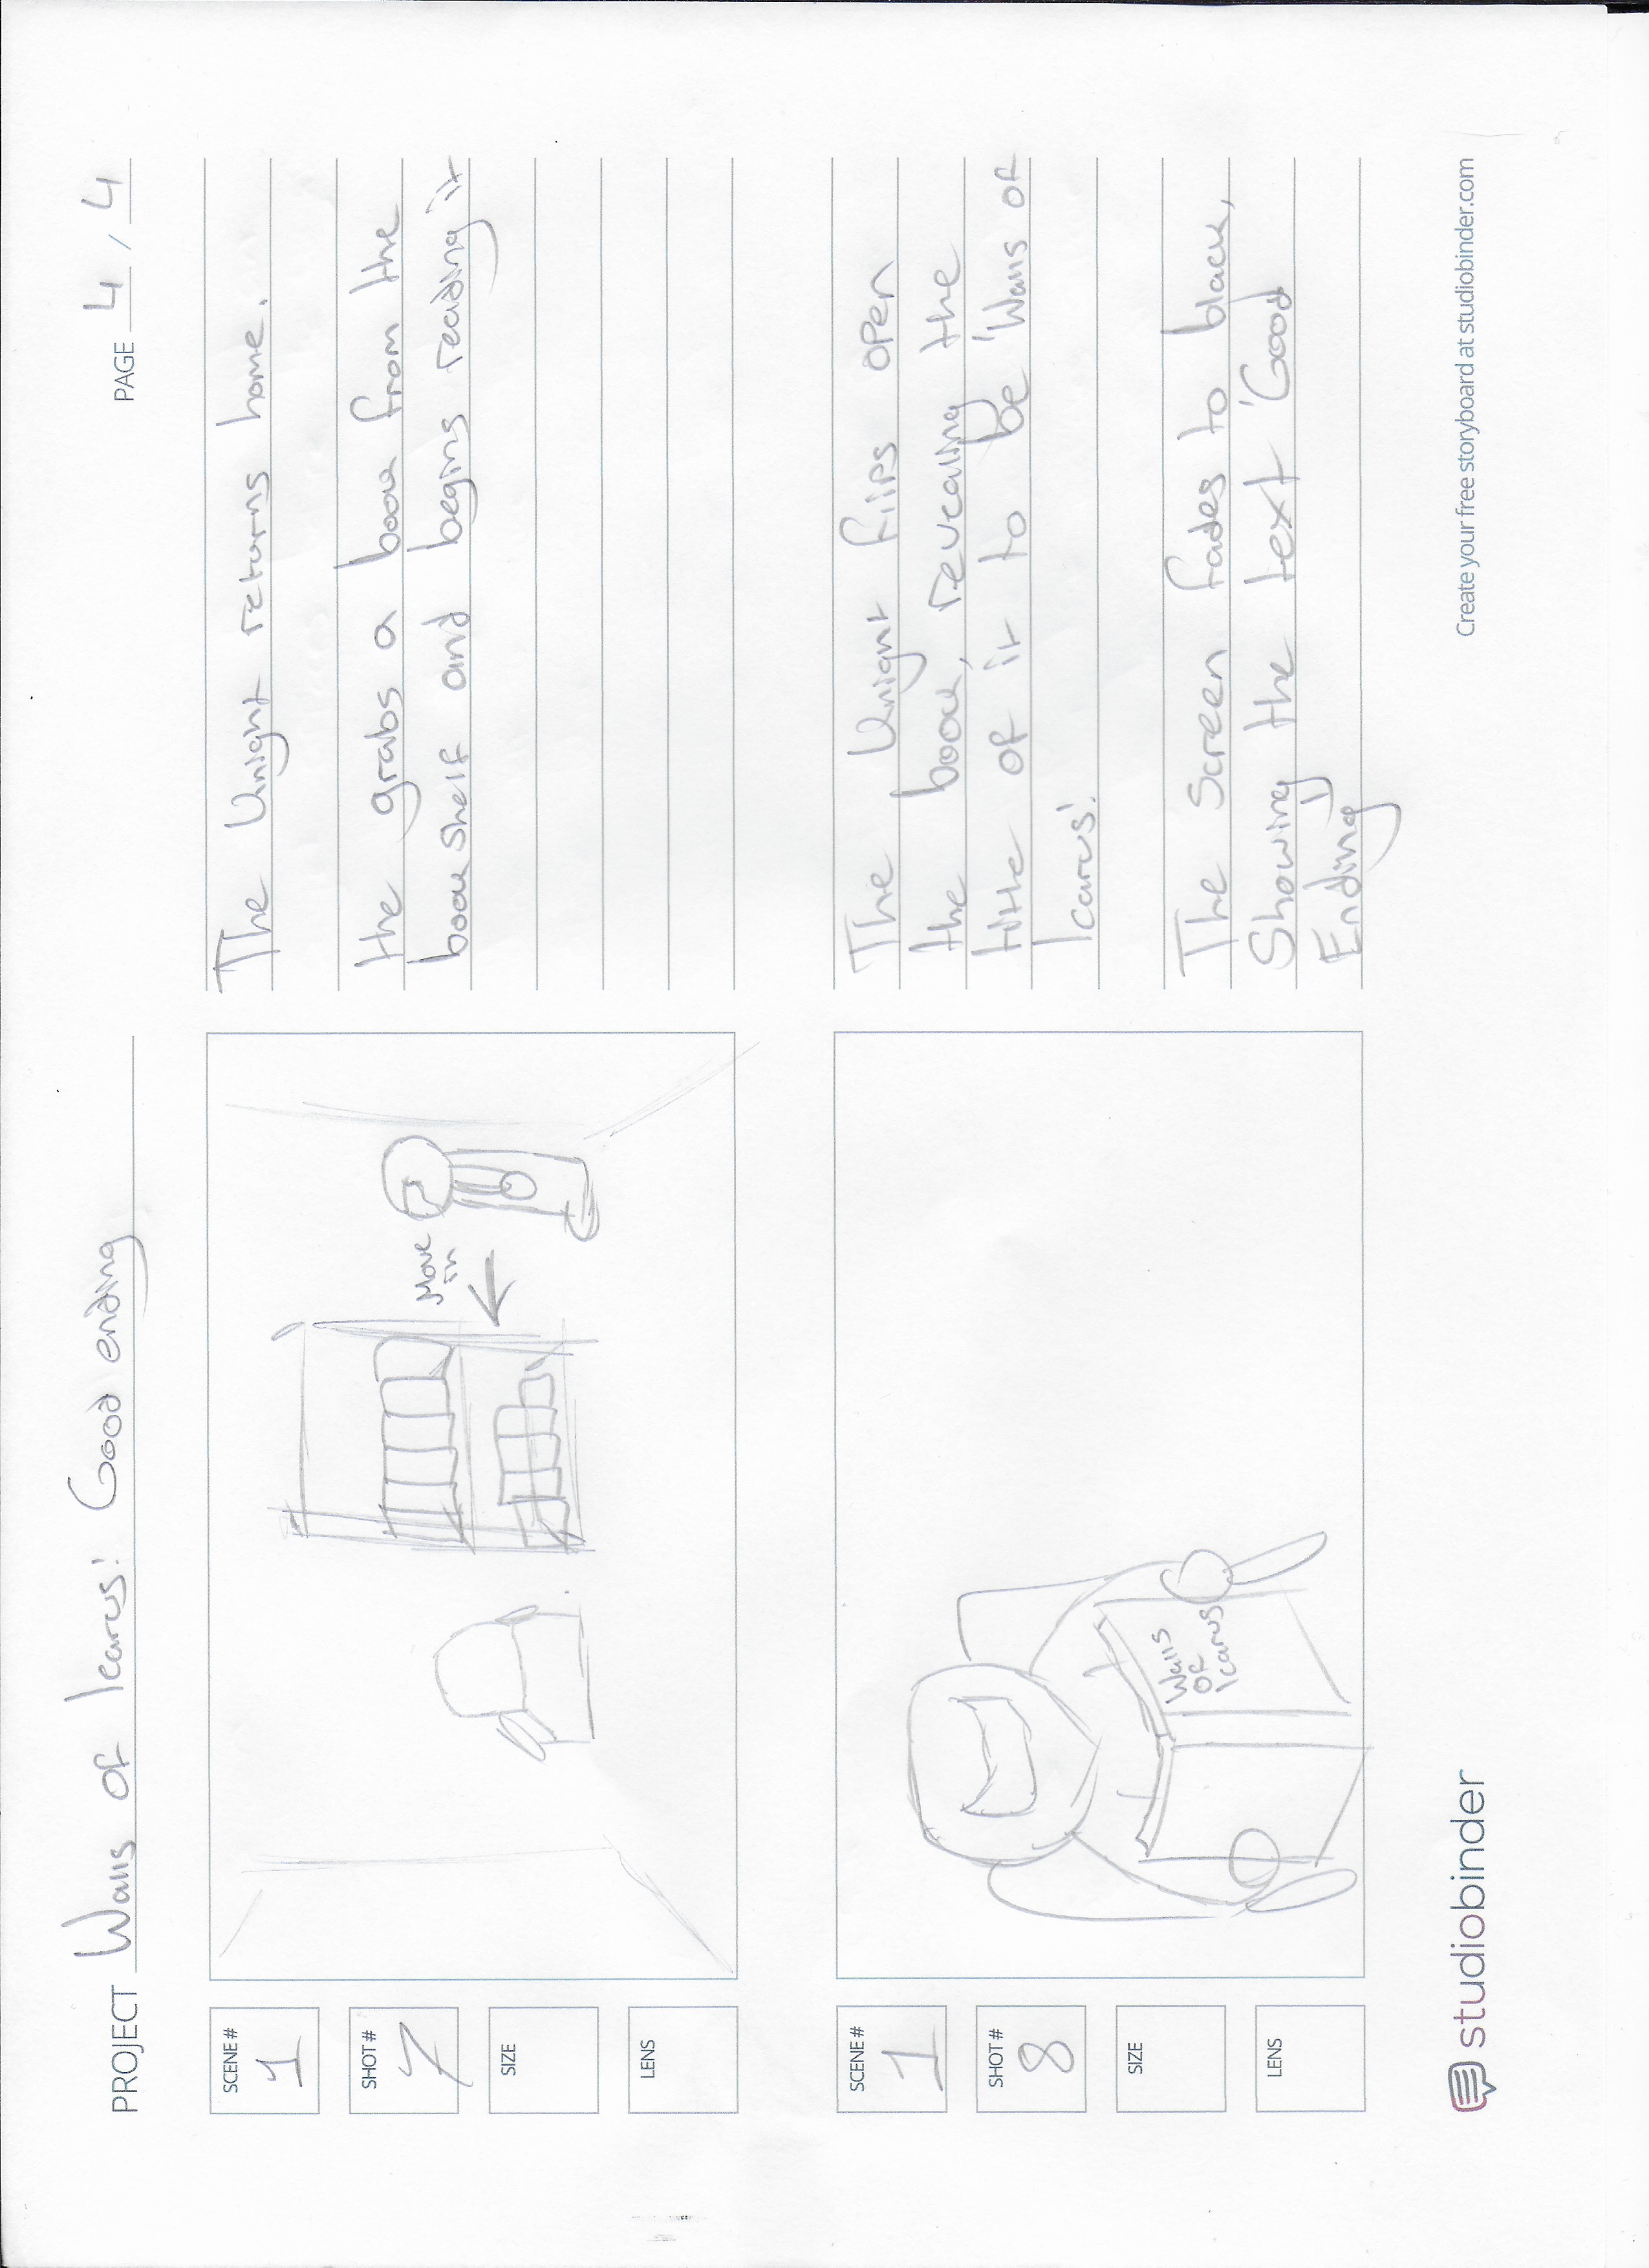 PROJECT Walls of Icarus: Good ending
PAGE 4 / 4
SCENE #
1
SHOT #
7
SIZE
LENS
Move
in
The Knight returns home.
the grabs a book from the
book shelf and begins reading it
SCENE #
1
SHOT #
8
SIZE
LENS
Walls
OF
Icarus
The Knight flips open
the book, revealing the
title of it to be 'Walls of
Icarus'.
The Screen fades to black,
Showing the text 'Good
Ending'
studiobinder
Create your free storyboard at studiobinder.com